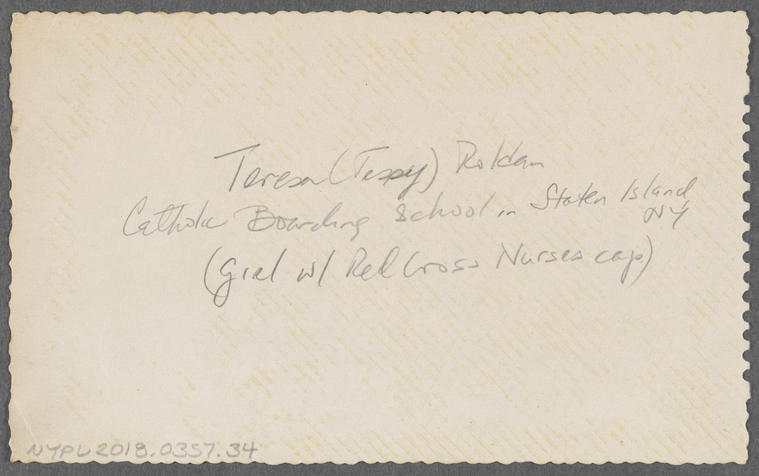 Teresa (Tessy) Roldan
Catholic Boarding School in Staten Island
NY
(girl w/ Red Cross Nurses cap)
NYPL2018.0357.34